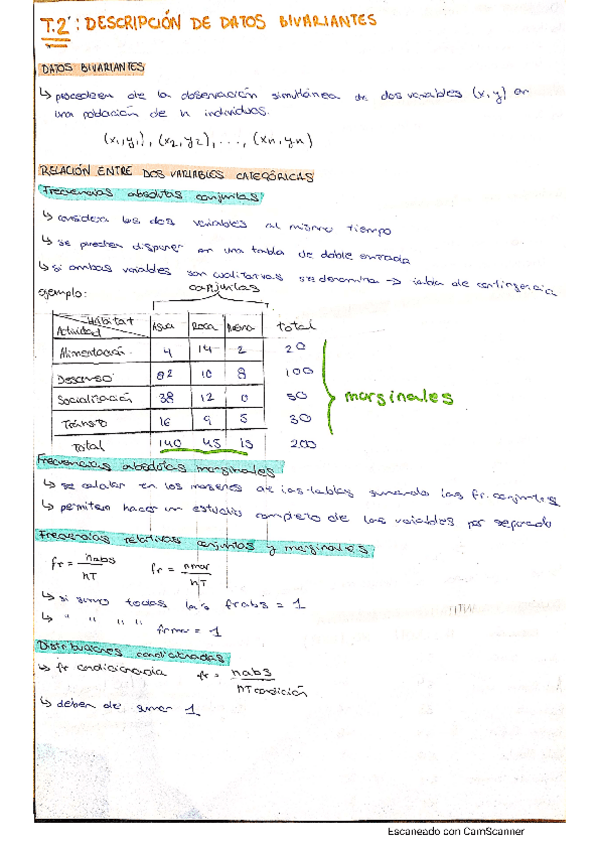 T.2: DESCRIPCIÓN DE DATOS BIVARIANTES
DATOS BIVARIANTES
↳ proceden de la observación simultánea de dos variables (x,y) en
una población de n individuos.
(x1,y1), (x2,y2), ..., (xn,yn)
RELACIÓN ENTRE DOS VARIABLES CATEGÓRICAS
Frecuencias absolutas conjuntas
↳ considera las dos variables al mismo tiempo
↳ se pueden disponer en una tabla de doble entrada
↳ si ambas variables son cualitativas se denomina → tabla de contingencia
ejemplo: conjuntas
Hábitat
Actividad Agua Roca Arena Total
Alimentación 4 14 2 20
Descanso 82 10 8 100
Socialización 38 12 0 50
Tránsito 16 9 5 30
Total 140 45 15 200
marginales
Frecuencias absolutas marginales
↳ se calculan en los márgenes de las tablas sumando las fr. conjuntas
↳ permiten hacer un estudio completo de las variables por separado
Frecuencias relativas conjuntas y marginales
fr = nabs/nT fr = nmar/nT
↳ si sumo todas las frabs = 1
↳ " " " " frmar = 1
Distribuciones condicionadas
↳ fr condicionada fr = nabs/nT condición
↳ deben de sumar 1
Escaneado con CamScanner